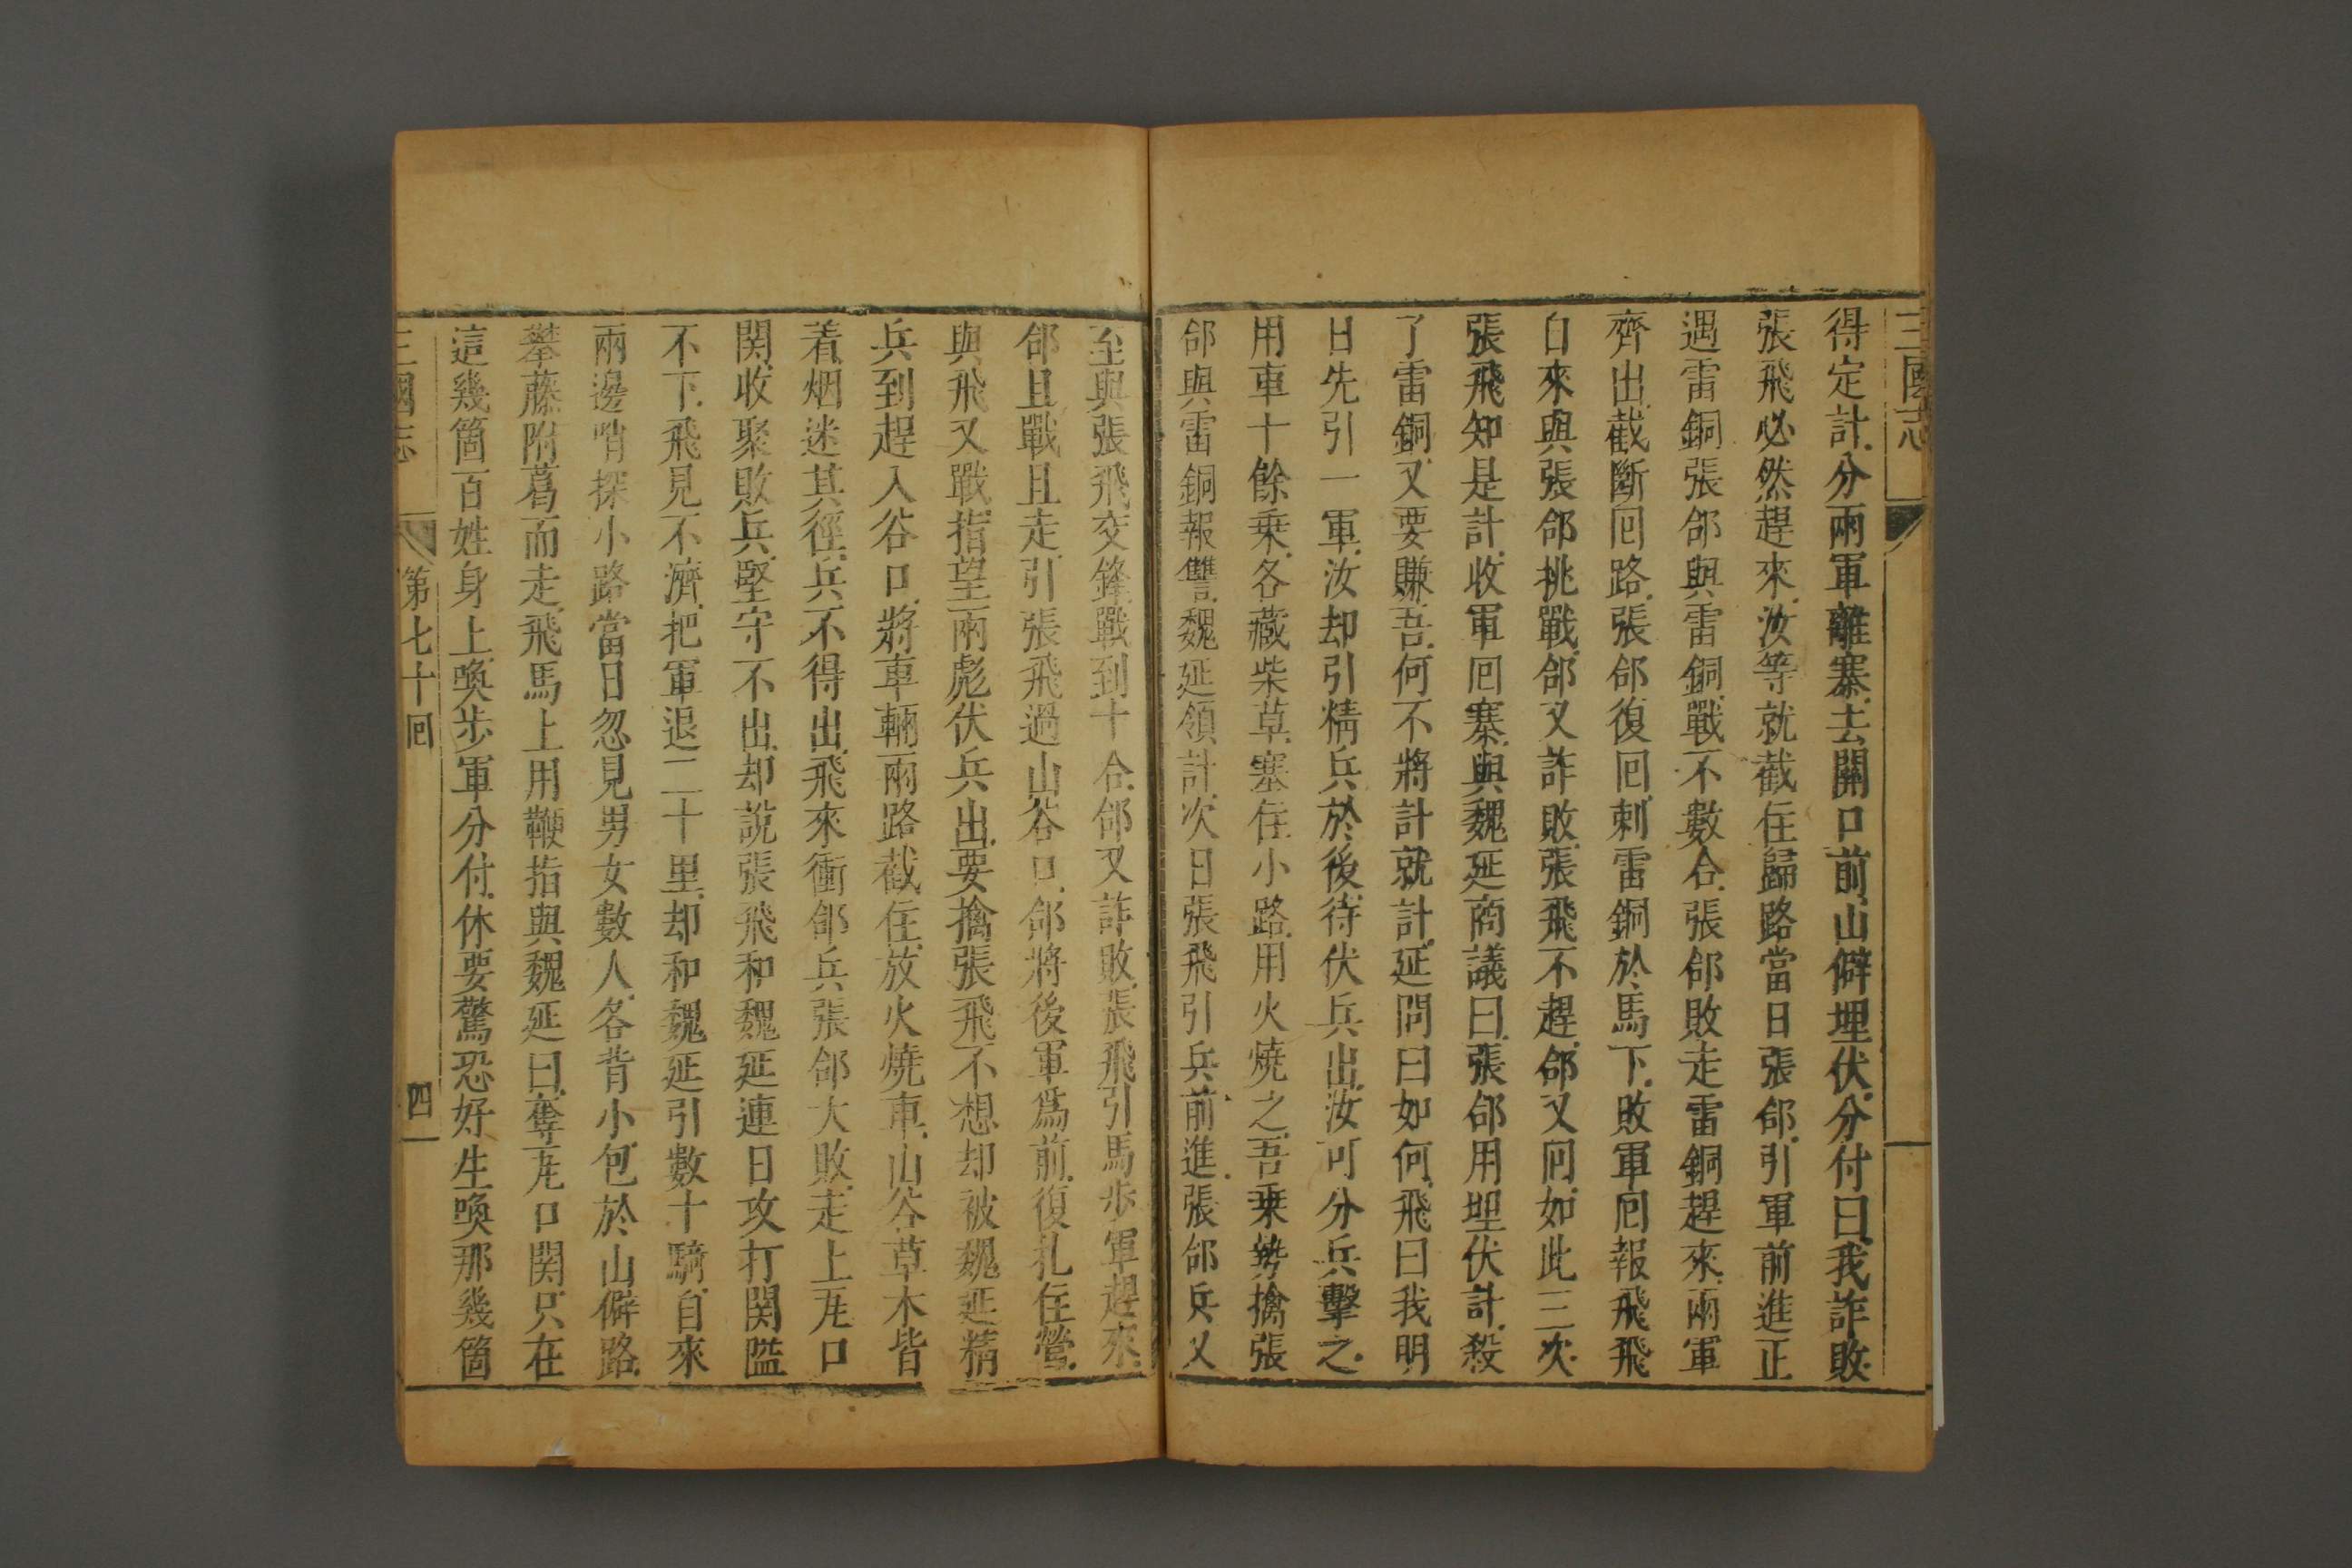 三國志
得定計分兩軍離寨去關口前山僻埋伏分付曰我詐敗
張飛必然趕來汝等就截住歸路當日張郃引軍前進正
遇雷銅張郃與雷銅戰不數合張郃敗走雷銅趕來兩軍
齊出截斷囘路張郃復囘刺雷銅於馬下敗軍囘報飛飛
自來與張郃挑戰郃又詐敗張飛不趕郃又囘如此三次
張飛知是計收軍囘寨與魏延商議曰張郃用埋伏計殺
了雷銅又要賺吾何不將計就計延問曰如何飛曰我明
日先引一軍汝却引精兵於後待伏兵出汝可分兵擊之
用車十餘乗各藏柴草塞住小路用火燒之吾乗勢擒張
郃與雷銅報讐魏延領計次日張飛引兵前進張郃兵又
至與張飛交鋒戰到十合郃又詐敗張飛引馬步軍趕來
郃且戰且走引張飛過山谷口郃將後軍爲前復扎住營
與飛又戰指望兩彪伏兵出要擒張飛不想却被魏延精
兵到趕入谷口將車輛兩路截住放火燒車山谷草木皆
着烟迷其徑兵不得出飛來衝郃兵張郃大敗走上尾口
関收聚敗兵堅守不出却說張飛和魏延連日攻打関隘
不下飛見不濟把軍退二十里却和魏延引數十騎自來
兩邊哨探小路當日忽見男女數人各背小包於山僻路
攀藤附葛而走飛馬上用鞭指與魏延曰奪尾口関只在
這幾箇百姓身上喚步軍分付休要驚恐好生喚那幾箇
三國志
第七十囘
四